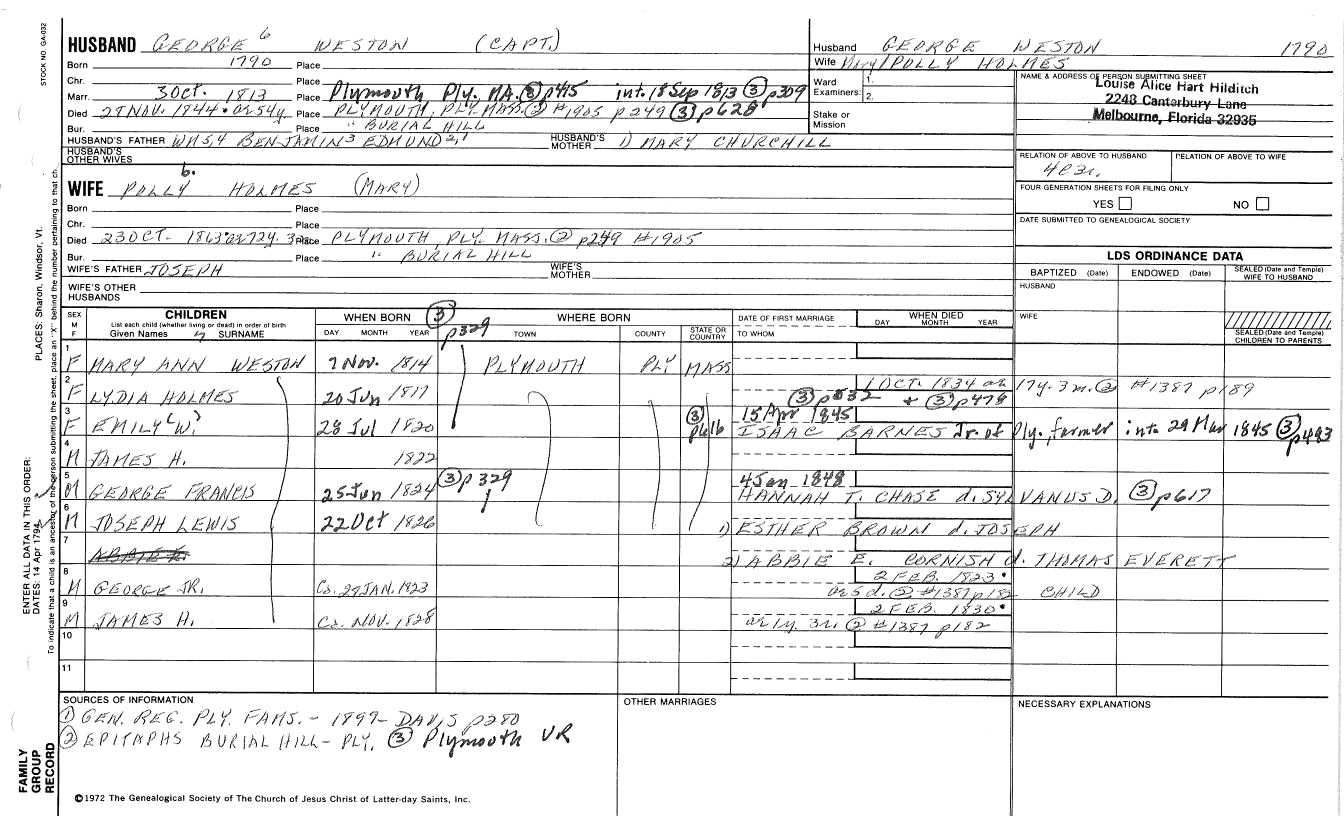 STOCK NO. GA-032
PLACES: Sharon, Windsor, Vt.
ENTER ALL DATA IN THIS ORDER:
DATES: 14 Apr 1794
To indicate that a child is an ancestor of the person submitting the sheet, place an "X" behind the number pertaining to that ch.
FAMILY GROUP RECORD
HUSBAND GEORGE 6 WESTON (CAPT.)
Born 1790 Place
Chr. Place
Marr. 3 OCt. 1813 Place Plymouth Ply. MA. ③ p415 int. 18 Sep 1813 ③ p309
Died 27 NOV. 1844 · ae 54y Place PLYMOUTH, PLY. MASS. ② #1905 p249 ③ p628
Bur. Place " BURIAL HILL
HUSBAND'S FATHER WM5,4 BENJAMIN3 EDMUND2,1 HUSBAND'S MOTHER 1) MARY CHURCHILL
HUSBAND'S OTHER WIVES
WIFE POLLY 6. HOLMES (MARY)
Born Place
Chr. Place
Died 23 OCT. 1863 · ae 72y. Place PLYMOUTH, PLY. MASS. ② p249 #1905
Bur. Place " BURIAL HILL
WIFE'S FATHER JOSEPH WIFE'S MOTHER
WIFE'S OTHER HUSBANDS
Husband GEORGE WESTON 1790
Wife Mary/POLLY HOLMES
Ward Examiners: 1. 2.
Stake or Mission
NAME & ADDRESS OF PERSON SUBMITTING SHEET
Louise Alice Hart Hilditch
2248 Canterbury Lane
Melbourne, Florida 32935
RELATION OF ABOVE TO HUSBAND RELATION OF ABOVE TO WIFE
FOUR GENERATION SHEETS FOR FILING ONLY
YES NO
DATE SUBMITTED TO GENEALOGICAL SOCIETY
LDS ORDINANCE DATA
BAPTIZED (Date) ENDOWED (Date) SEALED (Date and Temple) WIFE TO HUSBAND
HUSBAND
WIFE
SEALED (Date and Temple) CHILDREN TO PARENTS
SEX M F
CHILDREN
List each child (whether living or dead) in order of birth
Given Names SURNAME
WHEN BORN
DAY MONTH YEAR
③ p329
WHERE BORN
TOWN COUNTY STATE OR COUNTRY
DATE OF FIRST MARRIAGE
TO WHOM
WHEN DIED
DAY MONTH YEAR
1 F MARY ANN WESTON 7 Nov. 1814 PLYMOUTH PLY MASS
2 F LYDIA HOLMES 20 Jun 1817 1 OCT. 1834 ae 17y. 3m. ② #1387 p189
③ p632 + ③ p478
3 F EMILY "W." 28 Jul 1820 ③ p616 15 Apr 1845
ISAAC BARNES Jr. of Ply., farmer int. 29 Mar 1845 ③ p493
4 M JAMES H. 1822
5 M GEORGE FRANCIS 25 Jun 1824 ③ p329 4 Jan 1848
HANNAH T. CHASE d. SYLVANUS D. ③ p617
6 M JOSEPH LEWIS 22 Oct 1826 1) ESTHER BROWN d. JOSEPH
7 ABBIE E. 2) ABBIE E. CORNISH d. THOMAS EVERETT
8 M GEORGE JR. Ca. 29 JAN. 1823 2 FEB. 1823 ·
ae 5 d. ② #1387 p182 CHILD
9 M JAMES H. Ca. NOV. 1828 2 FEB. 1830 ·
ae 1y. 3m. ② #1387 p182
10
11
SOURCES OF INFORMATION
① GEN. REG. PLY. FAMS. - 1899 - DAVIS p280
② EPITAPHS BURIAL HILL - PLY. ③ Plymouth VR
OTHER MARRIAGES
NECESSARY EXPLANATIONS
©1972 The Genealogical Society of The Church of Jesus Christ of Latter-day Saints, Inc.